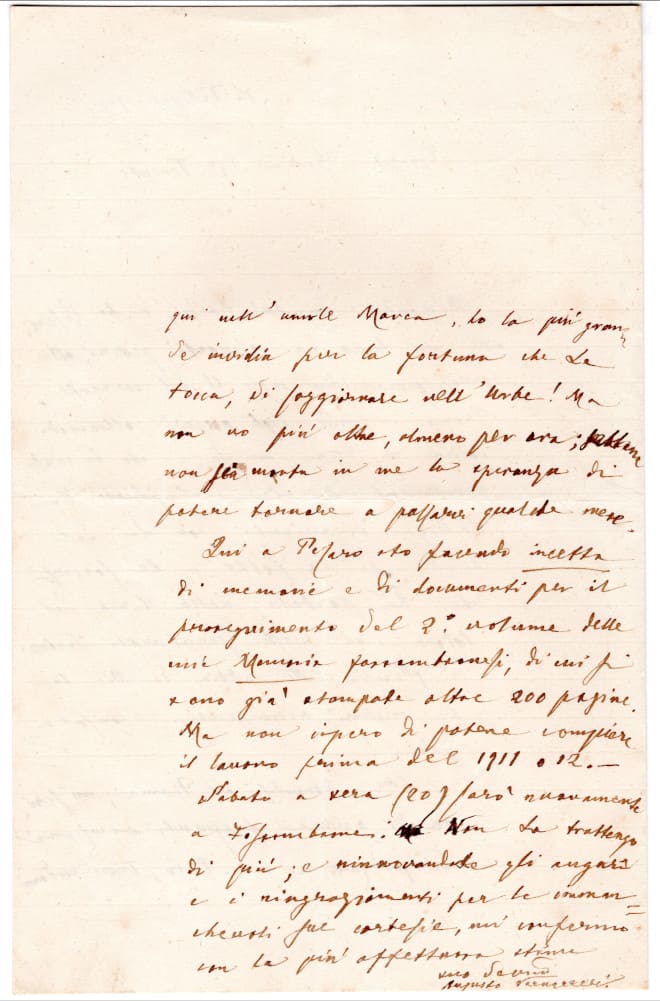 qui nell' umile Marca, ho la più gran-
de invidia per la fortuna che Le
tocca, di soggiornare nell' Urbe! Ma
non vo più oltre, almeno per ora;
non sia morta in me la speranza di
potere tornare a passarvi qualche mese.
Qui a Pesaro sto facendo incetta
di memorie e di documenti per il
proseguimento del 2.° volume delle
mie Memorie forsembronesi, di cui si
sono già stampate oltre 200 pagine.
Ma non ispero di potere compiere
il lavoro prima del 1911 o 12. —
Sabato a sera (20) sarò nuovamente
a Fossombrone. Non La trattengo
di più; e rinnovandole gli auguri
e i ringraziamenti per le imman-
chevoli sue cortesie, mi confermo
con la più affettuosa stima
suo devmo
Augusto Vernarecci.